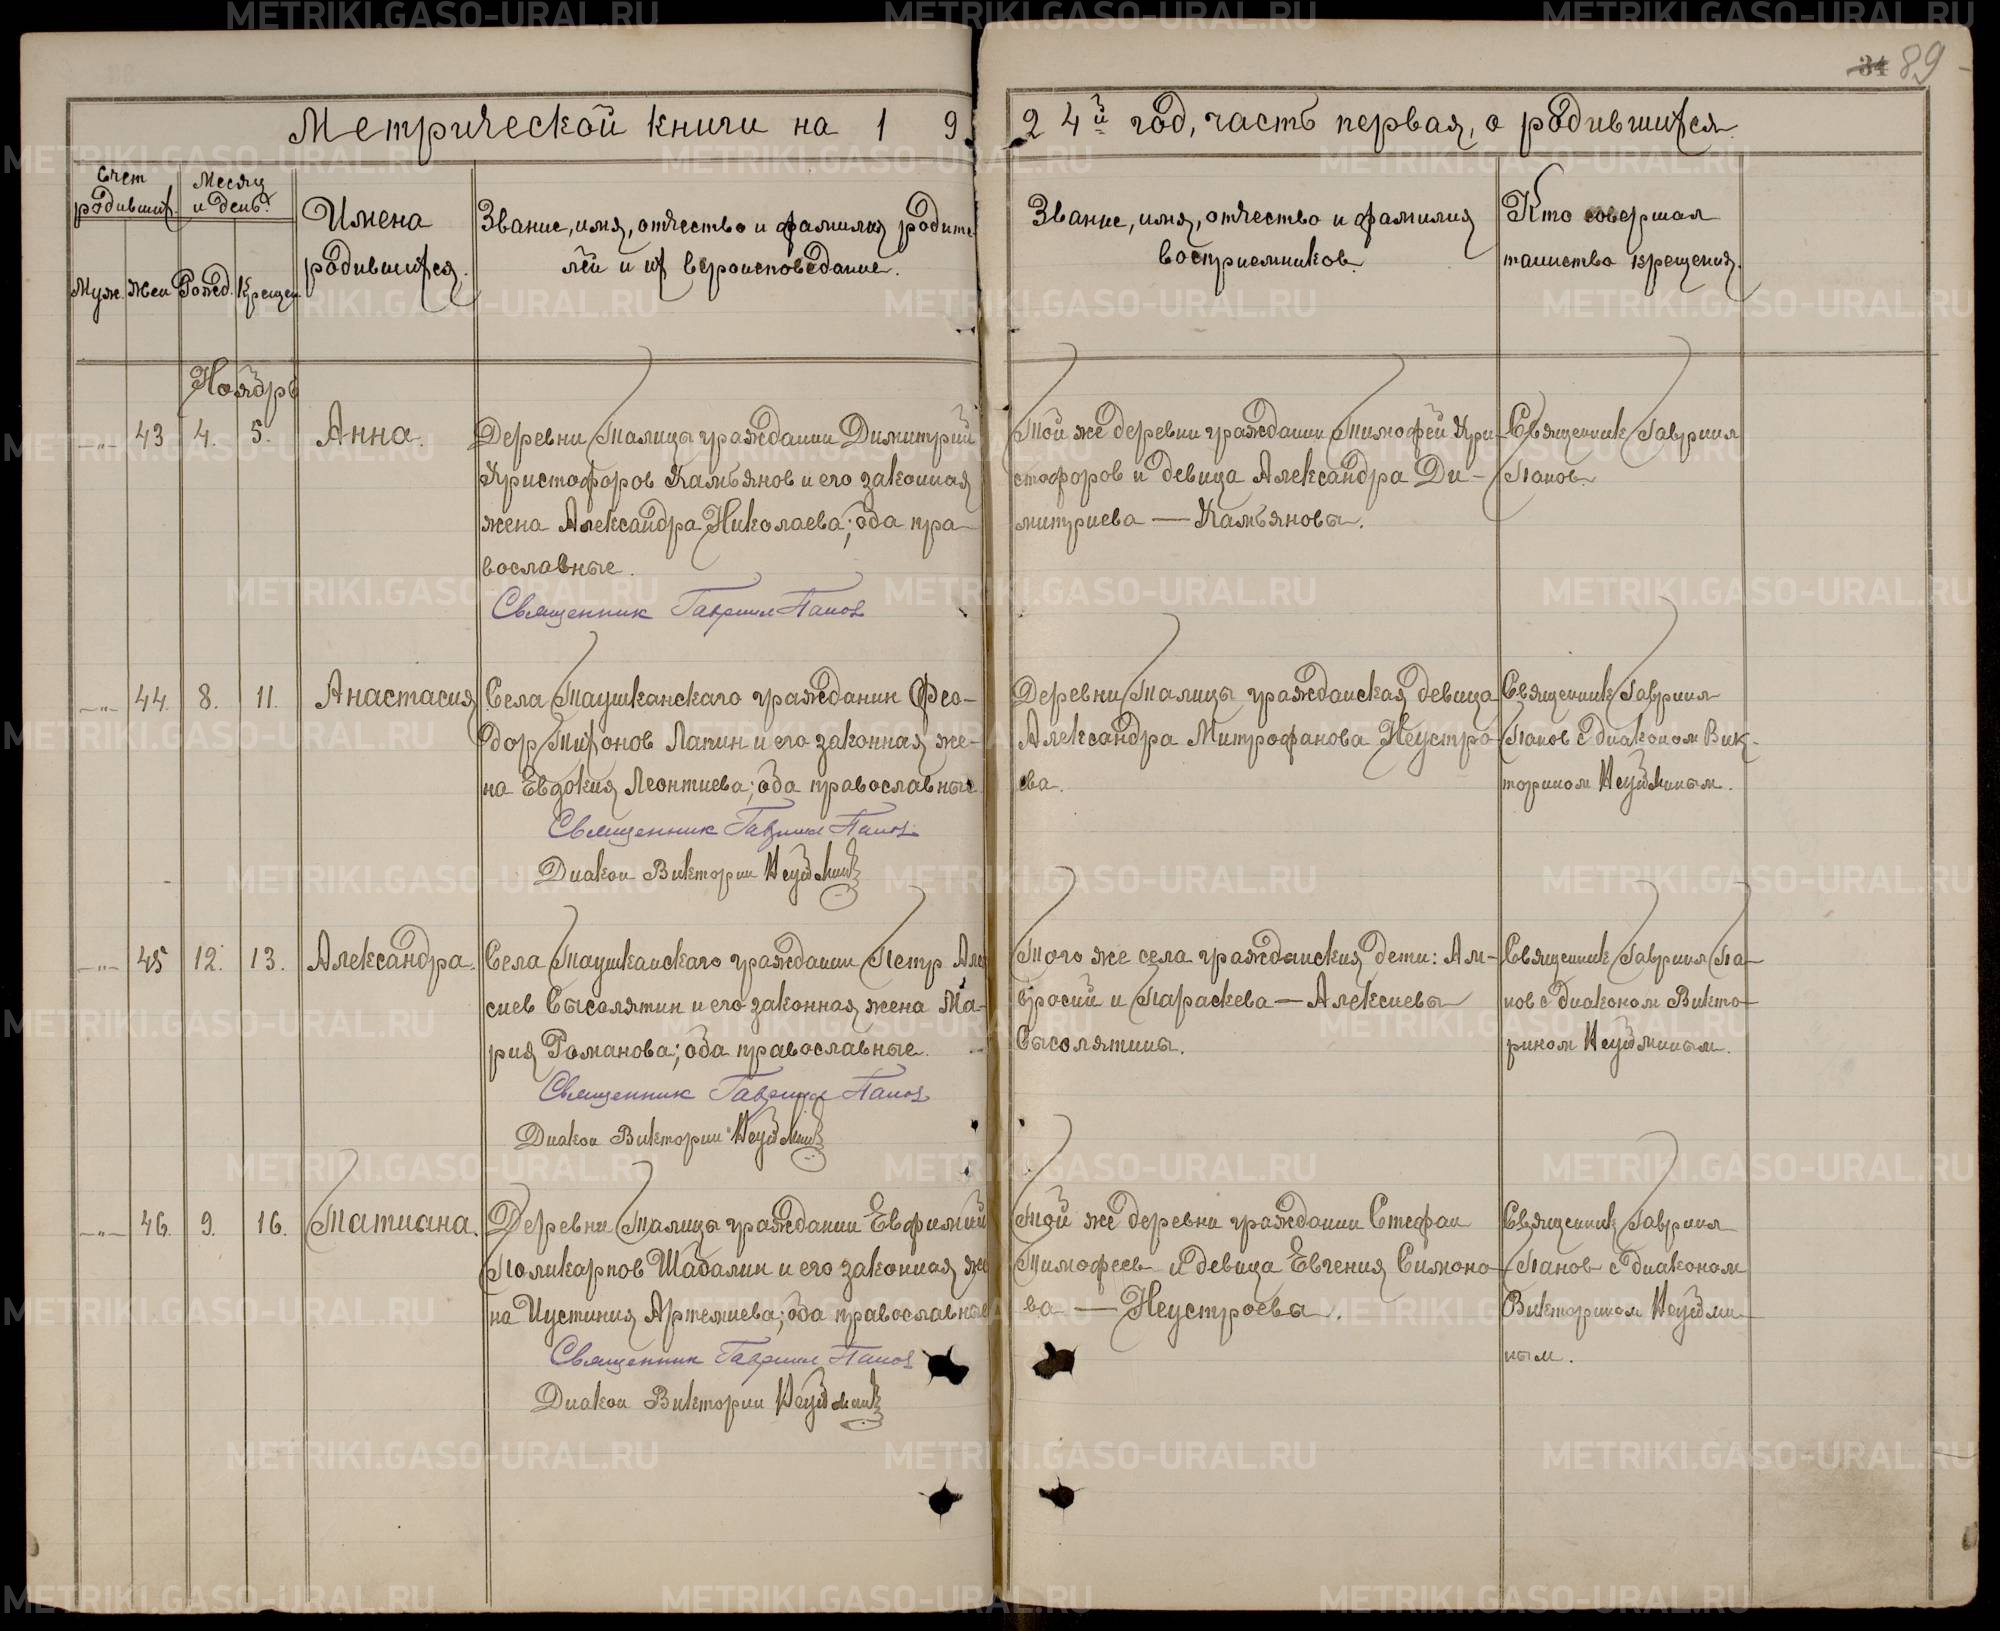 34 89
Метрической книги на 1 9 2 4й год, часть первая, о родившихся.
Счет родивших.
Месяц и день.
Муж. Жен. Рожд. Крещен.
Имена
родившихся.
Звание, имя, отчество и фамилия родите
лей и их вероисповедание.
Звание, имя, отчество и фамилия
восприемников.
Кто совершал
таинство крещения.
Ноябрь
—"— 43 4. 5. Анна.
Деревни Талицы гражданин Димитрий
Христофоров Камьянов и его законная
жена Александра Николаева; оба пра-
вославные.
Священник Гавриил Панов
Той же деревни гражданин Тимофей Хри-
стофоров и девица Александра Ди-
митриева — Камьяновы.
Священник Гавриил
Панов.
—"— 44. 8. 11. Анастасия
Села Таушканскаго гражданин Фео-
дор Тихонов Лапин и его законная же-
на Евдокия Леонтиева; оба православные
Священник Гавриил Панов
Диакон Викторин Неуймин
Деревни Талицы гражданская девица
Александра Митрофанова Неустро-
ева.
Священник Гавриил
Панов с диаконом Вик-
торином Неуйминым.
—"— 45 12. 13. Александра.
Села Таушканскаго гражданин Петр Але
сиев Сысолятин и его законная жена Ма-
рия Романова; оба православные.
Священник Гавриил Панов
Диакон Викторин Неуймин
Того же села гражданския дети: Ам-
вросий и Параскева — Алексиевы
Сысолятины.
Священник Гавриил Па-
нов с диаконом Викто-
рином Неуйминым.
—"— 46. 9. 16. Татиана.
Деревни Талицы гражданин Евфимий
Поликарпов Шабалин и его законная же
на Иустиния Артемиева; оба православные
Священник Гавриил Панов
Диакон Викторин Неуймин
Той же деревни гражданин Стефан
Тимофеев и девица Евгения Симоно-
ва — Неустроевы.
Священник Гавриил
Панов с диаконом
Викторином Неуйми-
ным.
METRIKI.GASO-URAL.RU